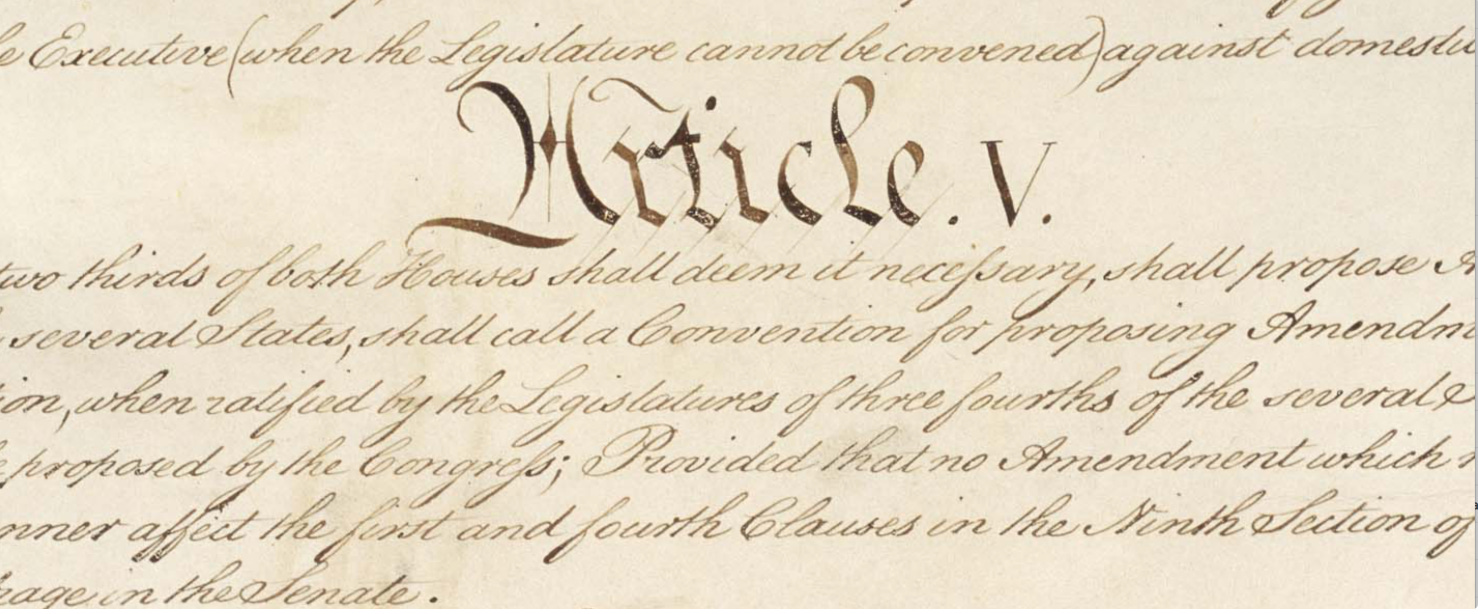 e Executive (when the Legislature cannot be convened) against domestic
Article. V.
two thirds of both Houses shall deem it neceſsary, shall propose A
several States, shall call a Convention for proposing Amendm
ion, when ratified by the Legislatures of three fourths of the several S
e proposed by the Congreſs; Provided that no Amendment which
nner affect the first and fourth Clauses in the Ninth Section of
rage in the Senate.